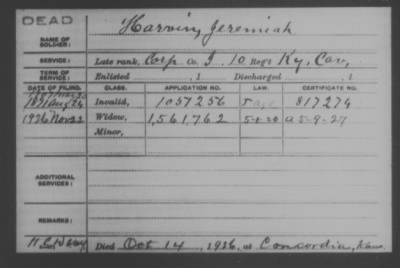 DEAD
NAME OF SOLDIER: Harvin, Jeremiah
SERVICE: Late rank, Corp. Co. I, 10 Reg't Ky. Cav.
TERM OF SERVICE: Enlisted , 1 Discharged , 1
DATE OF FILING. CLASS. APPLICATION NO. LAW. CERTIFICATE NO.
1891 Aug 24 Invalid, 1057256 817274
1926 Nov 22 Widow, 1,561,762 5-1-20 a 5-9-27
Minor,
ADDITIONAL SERVICES:
REMARKS:
Died Oct 14, 1926, at Concordia, Kans.